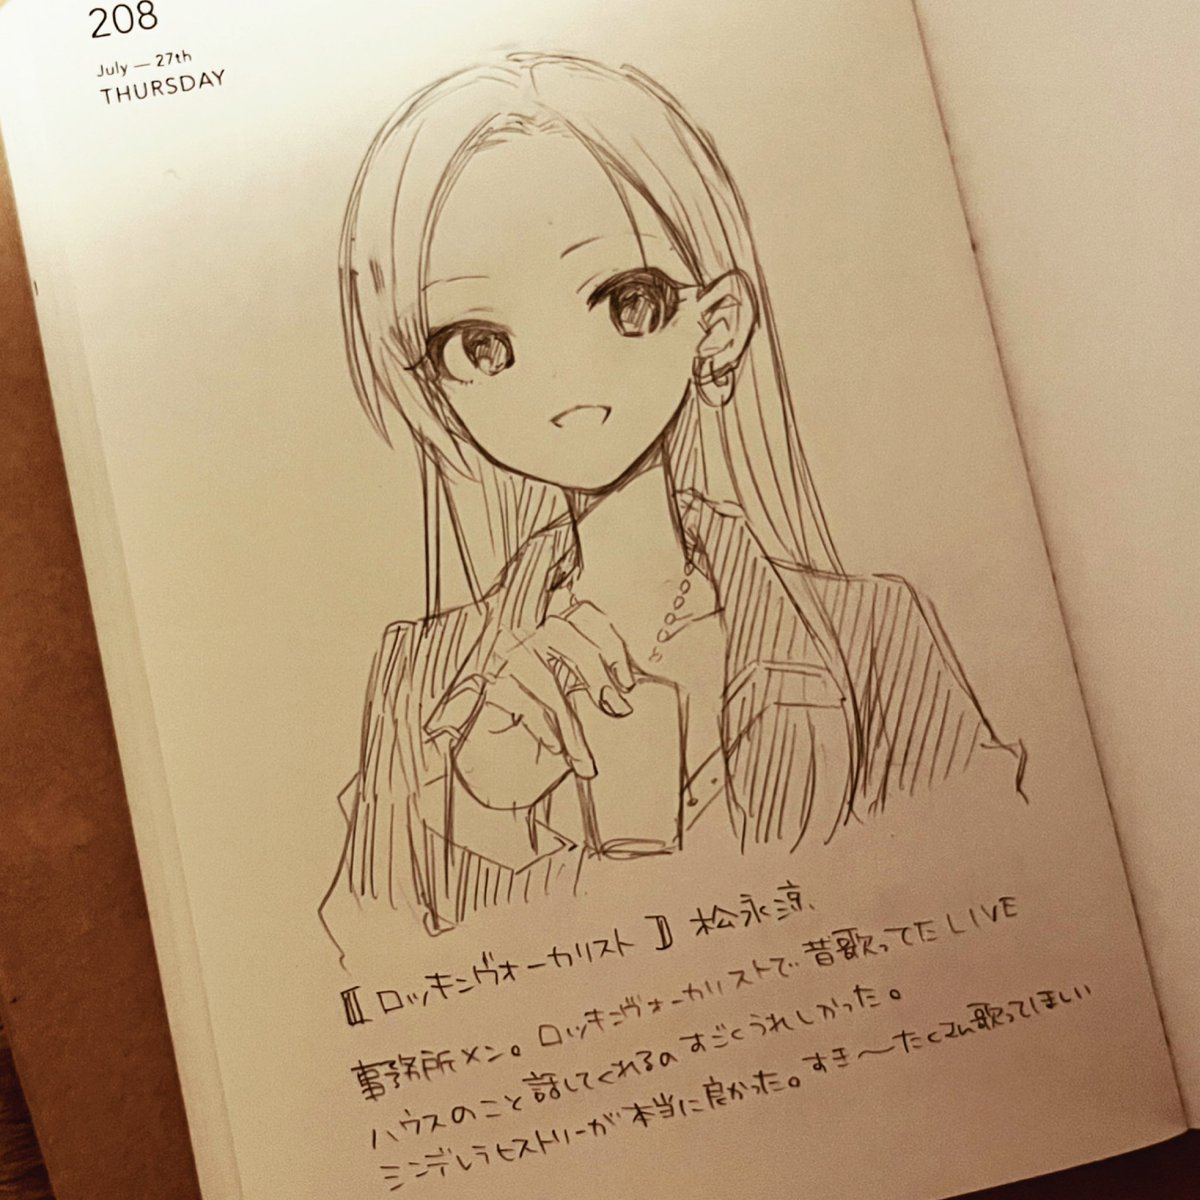 208
July — 27th
THURSDAY
【ロッキンヴォーカリスト】松永涼、
事務所メン。ロッキンヴォーカリストで昔歌ってたLIVE
ハウスのこと話してくれるのすごくうれしかった。
シンデレラヒストリーが本当に良かった。すき〜たくさん歌ってほしい